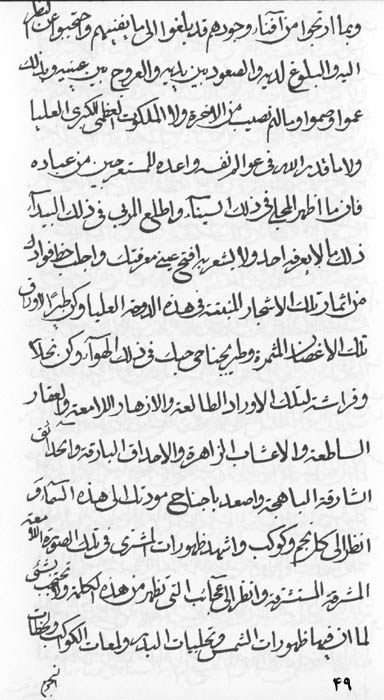 وبما ارتجوا من آفناء وجودهم قد بلغوا الى ما يفنيهم واحتجبوا عن النظر
اليه والبلوغ لديه والصعود بين يديه والعروج بين عينيه وبذلك
عموا وصموا وما لهم نصيب من الاخرة ولا الملكوت العظمى الكبرى العليا
ولا ما قدر الله في عوالم نفسه واعده للمستعرجين من عباده
فان ما اظهر المجلي في ذلك السيناء واطلع المرقي في ذلك البيداء
ذلك ما لا يعرفه احد ولا يشعر به افتح عيني معرفتك واجلب حظ فوادك
من اثمار تلك الاشجار المنبتة في هذه الدوحة العليا وكن طيرا لاوراق
تلك الاغصان المثمرة وطر بجناحي حبك في ذلك الهوآء وكن نحلا
وفراشة لتلك الاوراد الطالعة والازهار اللامعة والعقار
الساطعة والاعشاب الزاهرة والاحداق البارقة والحدائق
الشارقة الباهجة واصعد باجناح مودتك الى هذه السمآء و
انظر الى كل نجم وكوكب واشهد ظهورات المشرى في تلك الصورة اللامعة
المشرقة المستشرقة وانظر الى عجائب التي تظهر من هذه الكلمة ولا تحتجب بشئ
لما ان فيها ظهورات الشمس وتجليات البدر ولمعات الكواكب ولحظات
نجم
۴۹